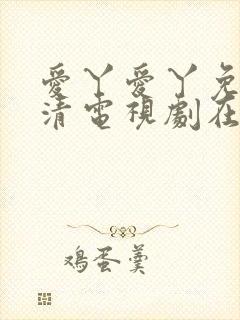 愛丫愛丫免
清電視劇在
鸡蛋羹